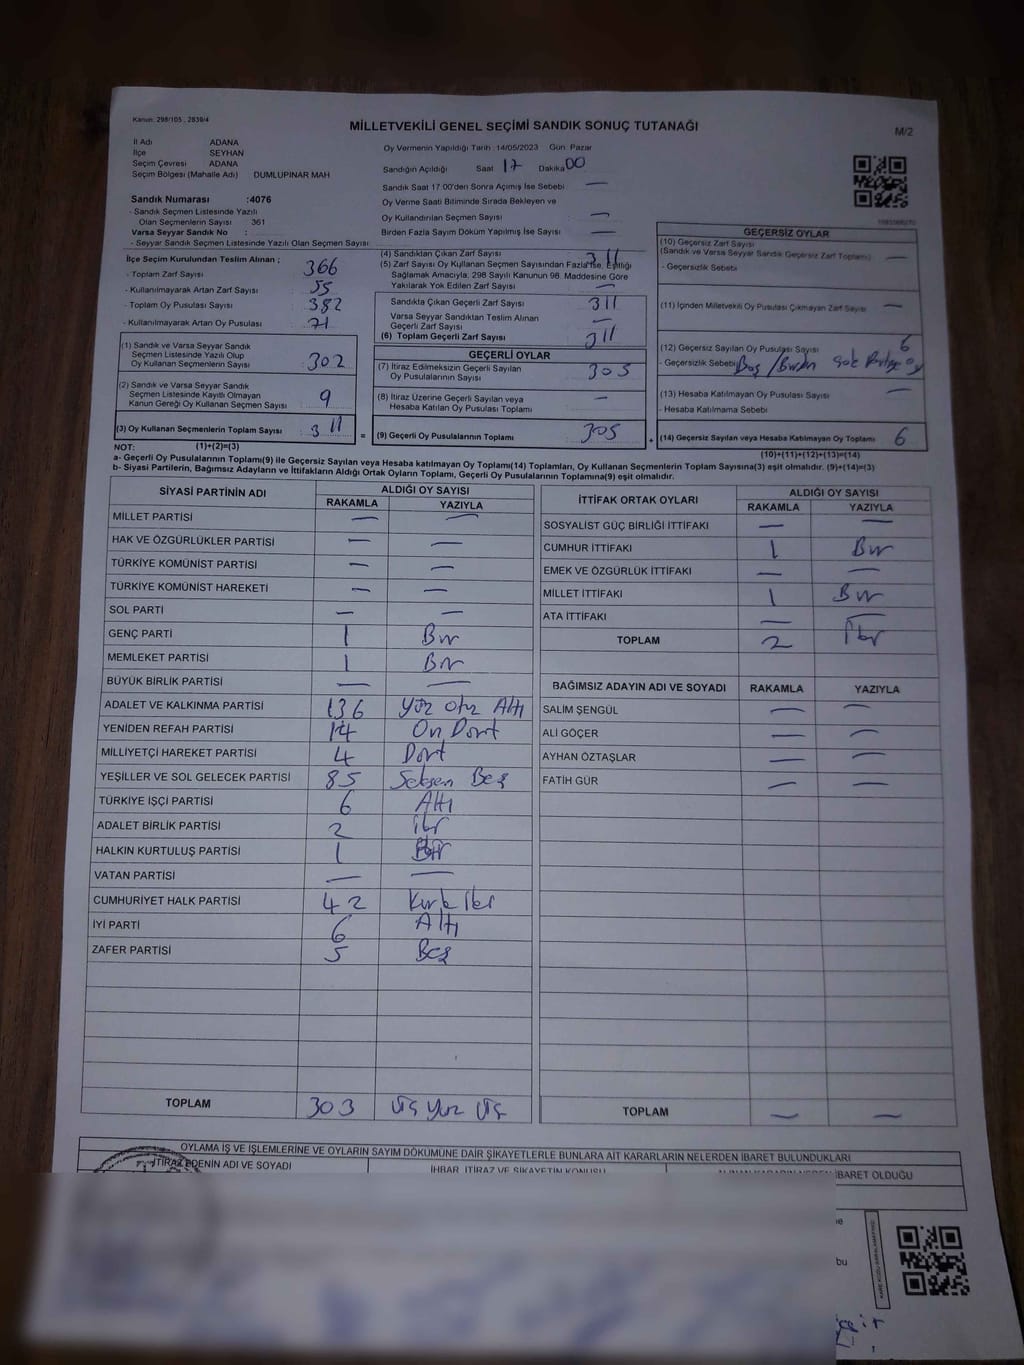 Kanun: 298/105 , 2839/4
MİLLETVEKİLİ GENEL SEÇİMİ SANDIK SONUÇ TUTANAĞI
M/2
İl Adı ADANA
İlçe SEYHAN
Seçim Çevresi ADANA
Seçim Bölgesi (Mahalle Adı) DUMLUPINAR MAH
Sandık Numarası :4076
- Sandık Seçmen Listesinde Yazılı
Olan Seçmenlerin Sayısı : 361
Varsa Seyyar Sandık No :
- Seyyar Sandık Seçmen Listesinde Yazılı Olan Seçmen Sayısı :
Oy Vermenin Yapıldığı Tarih : 14/05/2023 Gün: Pazar
Sandığın Açıldığı Saat 17 Dakika 00
Sandık Saat 17:00'den Sonra Açımış İse Sebebi —
Oy Verme Saati Bitiminde Sırada Bekleyen ve
Oy Kullandırılan Seçmen Sayısı —
Birden Fazla Sayım Döküm Yapılmış İse Sayısı —
İlçe Seçim Kurulundan Teslim Alınan ;
- Toplam Zarf Sayısı 366
- Kullanılmayarak Artan Zarf Sayısı 55
- Toplam Oy Pusulası Sayısı 382
- Kullanılmayarak Artan Oy Pusulası 71
(1) Sandık ve Varsa Seyyar Sandık
Seçmen Listesinde Yazılı Olup
Oy Kullanan Seçmenlerin Sayısı 302
(2) Sandık ve Varsa Seyyar Sandık
Seçmen Listesinde Kayıtlı Olmayan
Kanun Gereği Oy Kullanan Seçmen Sayısı 9
(3) Oy Kullanan Seçmenlerin Toplam Sayısı 311
(1)+(2)=(3)
(4) Sandıktan Çıkan Zarf Sayısı 311
(5) Zarf Sayısı Oy Kullanan Seçmen Sayısından Fazla İse, Eşitliği
Sağlamak Amacıyla; 298 Sayılı Kanunun 98. Maddesine Göre
Yakılarak Yok Edilen Zarf Sayısı —
Sandıkta Çıkan Geçerli Zarf Sayısı 311
Varsa Seyyar Sandıktan Teslim Alınan
Geçerli Zarf Sayısı —
(6) Toplam Geçerli Zarf Sayısı 311
GEÇERLİ OYLAR
(7) İtiraz Edilmeksizin Geçerli Sayılan
Oy Pusulalarının Sayısı 305
(8) İtiraz Üzerine Geçerli Sayılan veya
Hesaba Katılan Oy Pusulası Toplamı —
= (9) Geçerli Oy Pusulalarının Toplamı 305 +
GEÇERSİZ OYLAR
(10) Geçersiz Zarf Sayısı
(Sandık ve Varsa Seyyar Sandık Geçersiz Zarf Toplamı) —
- Geçersizlik Sebebi
(11) İçinden Milletvekili Oy Pusulası Çıkmayan Zarf Sayısı —
(12) Geçersiz Sayılan Oy Pusulası Sayısı 6
- Geçersizlik Sebebi Boş /Birden
(13) Hesaba Katılmayan Oy Pusulası Sayısı —
- Hesaba Katılmama Sebebi
(14) Geçersiz Sayılan veya Hesaba Katılmayan Oy Toplamı 6
(10)+(11)+(12)+(13)=(14)
NOT:
a- Geçerli Oy Pusulalarının Toplamı(9) ile Geçersiz Sayılan veya Hesaba katılmayan Oy Toplamı(14) Toplamları, Oy Kullanan Seçmenlerin Toplam Sayısına(3) eşit olmalıdır. (9)+(14)=(3)
b- Siyasi Partilerin, Bağımsız Adayların ve İttifakların Aldığı Ortak Oyların Toplamı, Geçerli Oy Pusulalarının Toplamına(9) eşit olmalıdır.
SİYASİ PARTİNİN ADI ALDIĞI OY SAYISI
RAKAMLA YAZIYLA
MİLLET PARTİSİ — —
HAK VE ÖZGÜRLÜKLER PARTİSİ — —
TÜRKİYE KOMÜNİST PARTİSİ — —
TÜRKİYE KOMÜNİST HAREKETİ — —
SOL PARTİ — —
GENÇ PARTİ 1 Bir
MEMLEKET PARTİSİ 1 Bir
BÜYÜK BİRLİK PARTİSİ — —
ADALET VE KALKINMA PARTİSİ 136 Yüz otuz Altı
YENİDEN REFAH PARTİSİ 14 On Dört
MİLLİYETÇİ HAREKET PARTİSİ 4 Dört
YEŞİLLER VE SOL GELECEK PARTİSİ 85 Seksen Beş
TÜRKİYE İŞÇİ PARTİSİ 6 Altı
ADALET BİRLİK PARTİSİ 2 iki
HALKIN KURTULUŞ PARTİSİ 1 Bir
VATAN PARTİSİ — —
CUMHURİYET HALK PARTİSİ 42 Kırk iki
İYİ PARTİ 6 Altı
ZAFER PARTİSİ 5 Beş
TOPLAM 303 Üç Yüz Üç
İTTİFAK ORTAK OYLARI ALDIĞI OY SAYISI
RAKAMLA YAZIYLA
SOSYALİST GÜÇ BİRLİĞİ İTTİFAKI — —
CUMHUR İTTİFAKI 1 Bir
EMEK VE ÖZGÜRLÜK İTTİFAKI — —
MİLLET İTTİFAKI 1 Bir
ATA İTTİFAKI — —
TOPLAM 2 İki
BAĞIMSIZ ADAYIN ADI VE SOYADI RAKAMLA YAZIYLA
SALİM ŞENGÜL — —
ALİ GÖÇER — —
AYHAN ÖZTAŞLAR — —
FATİH GÜR — —
TOPLAM — —
OYLAMA İŞ VE İŞLEMLERİNE VE OYLARIN SAYIM DÖKÜMÜNE DAİR ŞİKAYETLERLE BUNLARA AİT KARARLARIN NELERDEN İBARET BULUNDUKLARI
İTİRAZ EDENİN ADI VE SOYADI İHBAR, İTİRAZ VE ŞİKAYETİN KONUSU ALINAN KARARIN NEDEN İBARET OLDUĞU
bu